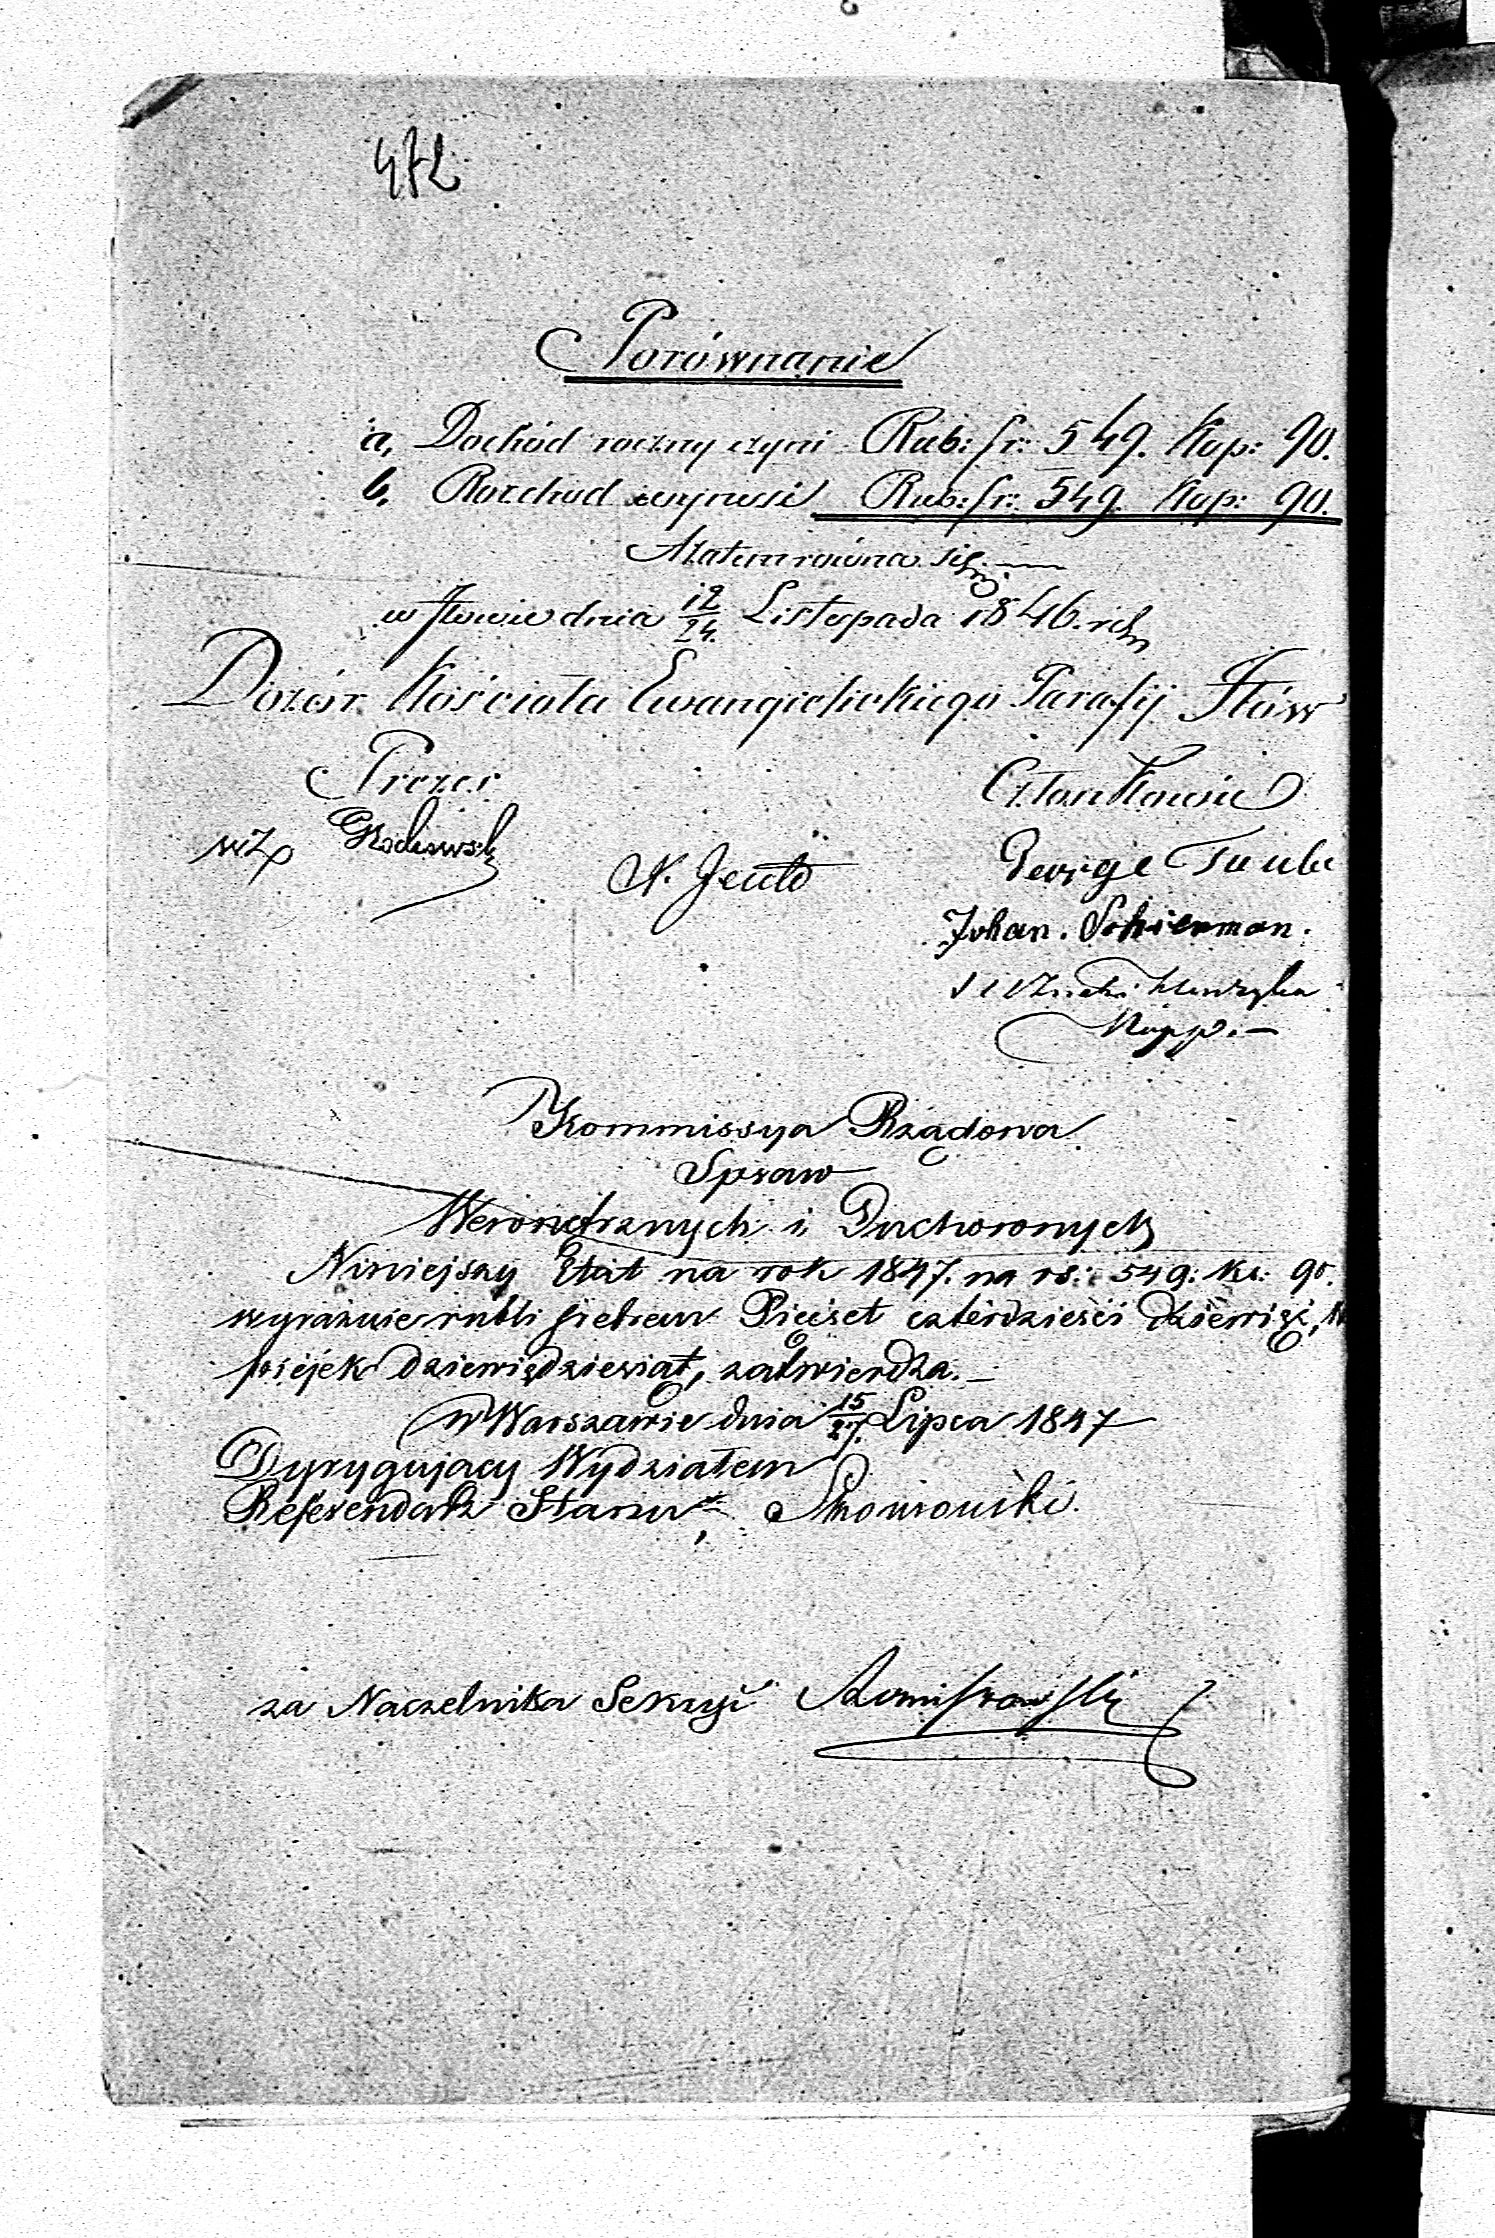 472
Porównanie
a, Dochód roczny czyni Rub: sr: 549. Kop: 90.
b, Rozchód wynosi Rub: sr: 549. Kop: 90.
A zatem równa się.—
w Iłowie dnia 12/24. Listopada 1846. r.
Dozór Kościoła Ewangielickiego Parafij Iłów
Prezes
Członkowie
N. Jeuto
George Taube
Johan. Schierman.
Rapp.—
Kommissya Rządowa
Spraw
Wewnętrznych i Duchownych
Niniejszy Etat na rok 1847. na rs: 549: k: 90.
wyraźnie rubli srebrem Pięćset czterdzieści dziewięć,
piejek dziewięćdziesiąt, zatwierdza.—
w Warszawie dnia 15/27. Lipca 1847
Dyrygujący Wydziałem
Referendarz Stanu, Skowroński.
za Naczelnika Sekcyi